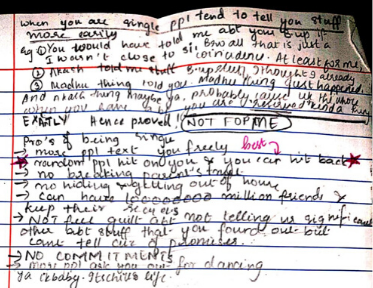 when you are single ppl tend to tell you stuff
more easily
eg ① You would have told me abt your b'up if
I wasn't close to si, Bro all that is just a
coincidence. At least for me,
② Akash told me stuff I thought I already
③ Madhu thing told you. Madhu thing just happened.
And akash thing maybe ya, probably
when you have and you are kinda thing
EXACTLY Hence proved! NOT FOR ME
Pro's of being single
→ more ppl text you freely best
→ random ppl hit on you & you can hit back
→ no breaking parent's trust
→ no hiding & getting out of house
→ can have 1000000 million friends &
keep their secrets
→ NOT feel guilt abt not telling us significant
other abt stuff that you found out but
cant tell cuz of promises.
→ NO COMMITMENTS
→ more ppl ask you out for dancing
Ya life.